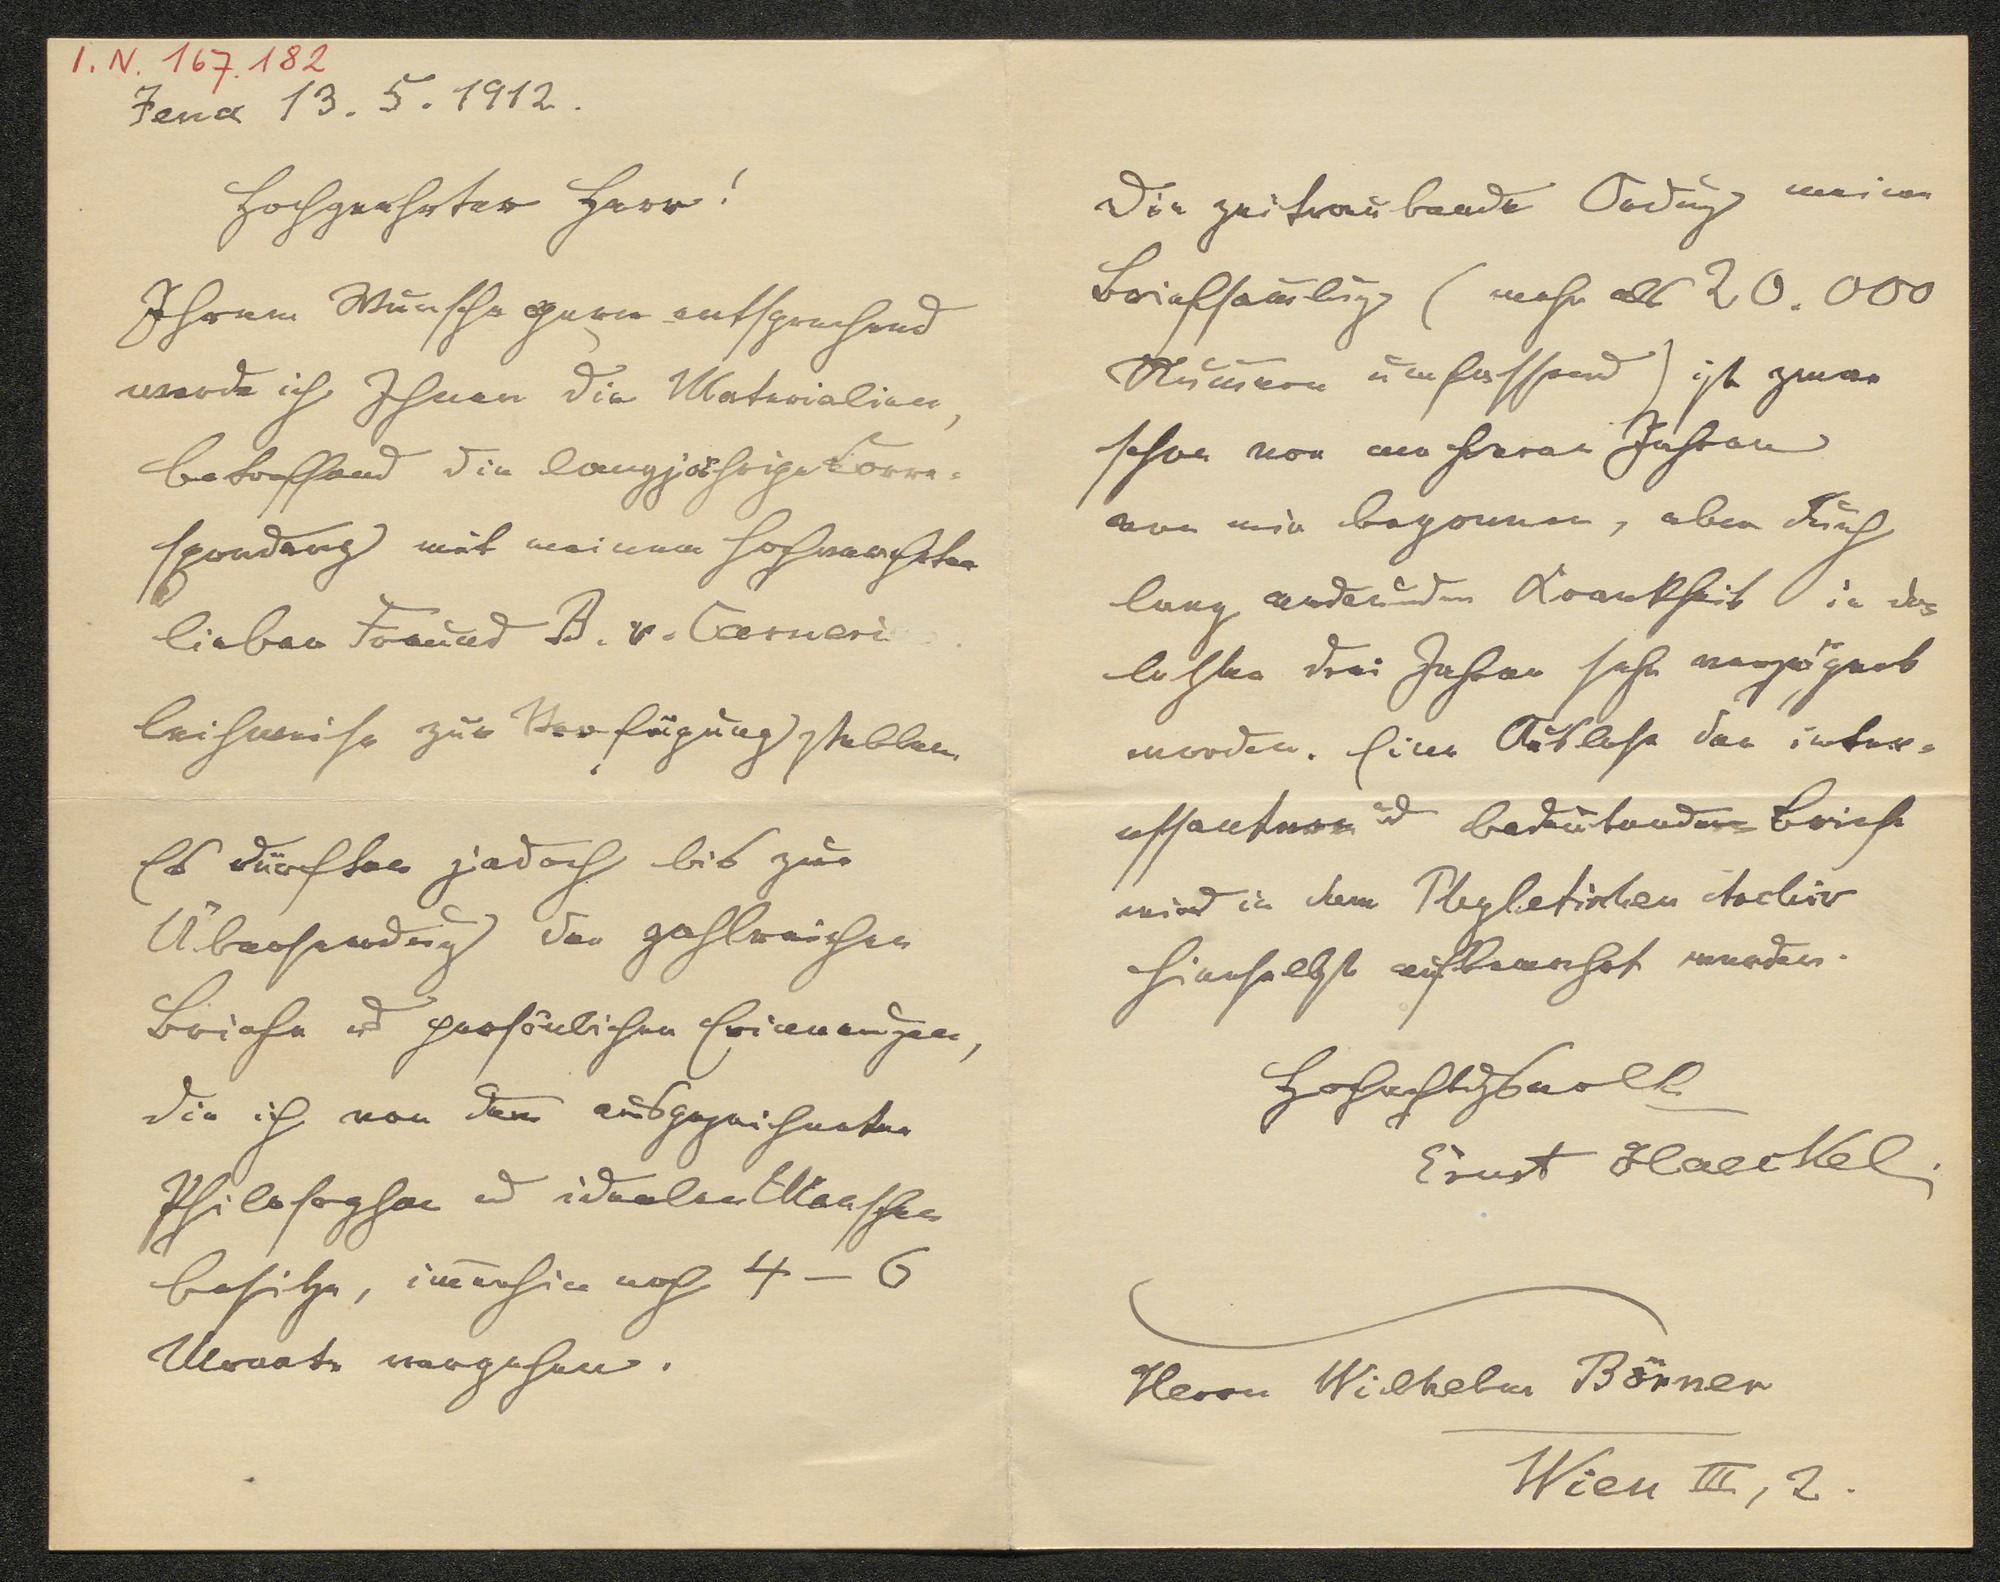 I. N. 167.182
Jena 13. 5. 1912.
Hochgeehrter Herr!
Ihrem Wunsche gern entsprechend
werde ich Ihnen die Materialien,
betreffend die langjährige Corre-
spondenz mit meinem hochverehrten
lieben Freund B. v. Carneri
leihweise zur Verfügung stellen.
Es dürften jedoch bis zur
Übersendung der zahlreichen
Briefe und persönlichen Erinnerungen,
die ich von dem ausgezeichneten
Philosophen und idealen Menschen
besitze, immerhin noch 4 – 6
Monate vergehen.
Die zeitraubende Ordnung meiner
Briefsammlung (mehr als 20.000
Nummern umfassend) ist zwar
schon vor mehreren Jahren
von mir begonnen, aber durch
lang andauernde Krankheit in den
letzten drei Jahren sehr verzögert
worden. Eine Auslese der inter-
essanteren und bedeutenderen Briefe
wird in dem Phyletischen Archiv
hierselbst aufbewahrt werden.
Hochachtungsvoll
Ernst Haeckel.
Herrn Wilhelm Börner
Wien III, 2.